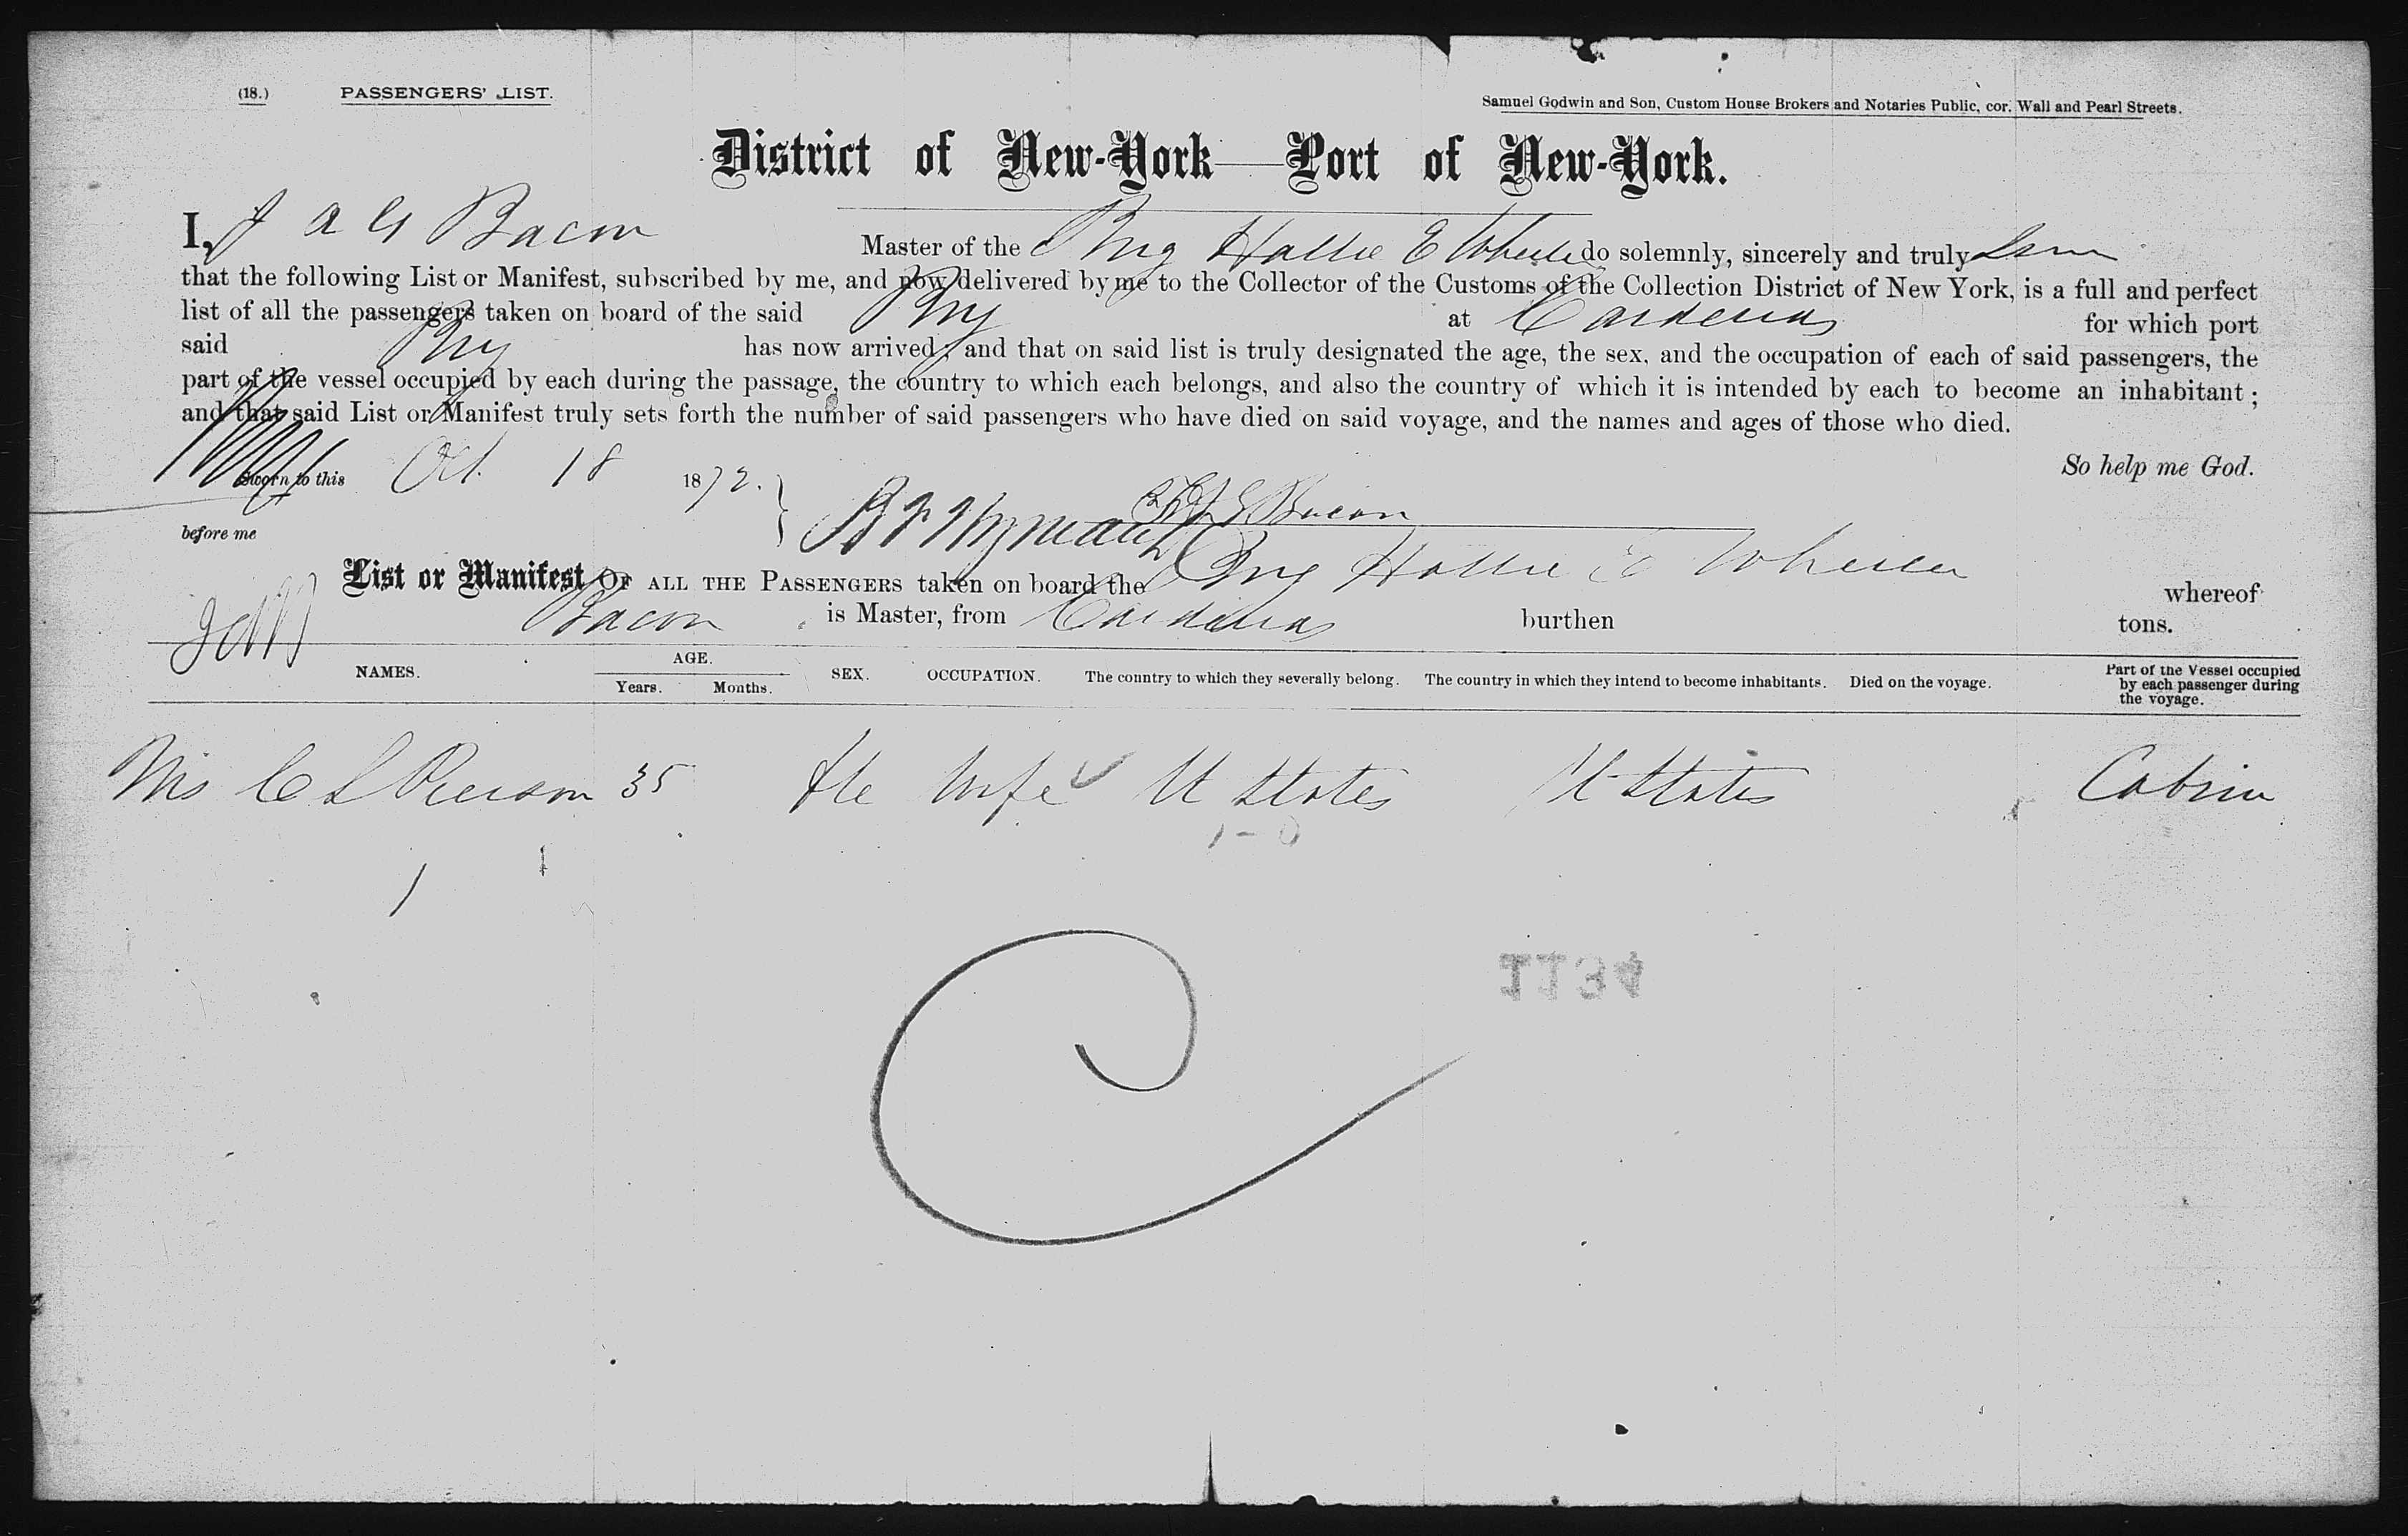 (18.) PASSENGERS' LIST.
Samuel Godwin and Son, Custom House Brokers and Notaries Public, cor. Wall and Pearl Streets.
District of New-York—Port of New-York.
I, Bacon Master of the Brig Hattie E Wheeler do solemnly, sincerely and truly
that the following List or Manifest, subscribed by me, and now delivered by me to the Collector of the Customs of the Collection District of New York, is a full and perfect
list of all the passengers taken on board of the said Brig at Cardenas for which port
said Brig has now arrived, and that on said list is truly designated the age, the sex, and the occupation of each of said passengers, the
part of the vessel occupied by each during the passage, the country to which each belongs, and also the country of which it is intended by each to become an inhabitant;
and that said List or Manifest truly sets forth the number of said passengers who have died on said voyage, and the names and ages of those who died.
So help me God.
Sworn to this Oct. 18 1872.
Bacon
before me
List or Manifest OF ALL THE PASSENGERS taken on board the Brig Hattie E Wheeler whereof
Bacon is Master, from Cardenas burthen tons.
NAMES. AGE. Years. Months. SEX. OCCUPATION. The country to which they severally belong. The country in which they intend to become inhabitants. Died on the voyage. Part of the Vessel occupied by each passenger during the voyage.
Mrs C L Pierson 35 Fle Wife U States U States Cabin
1 - 0
1
1134